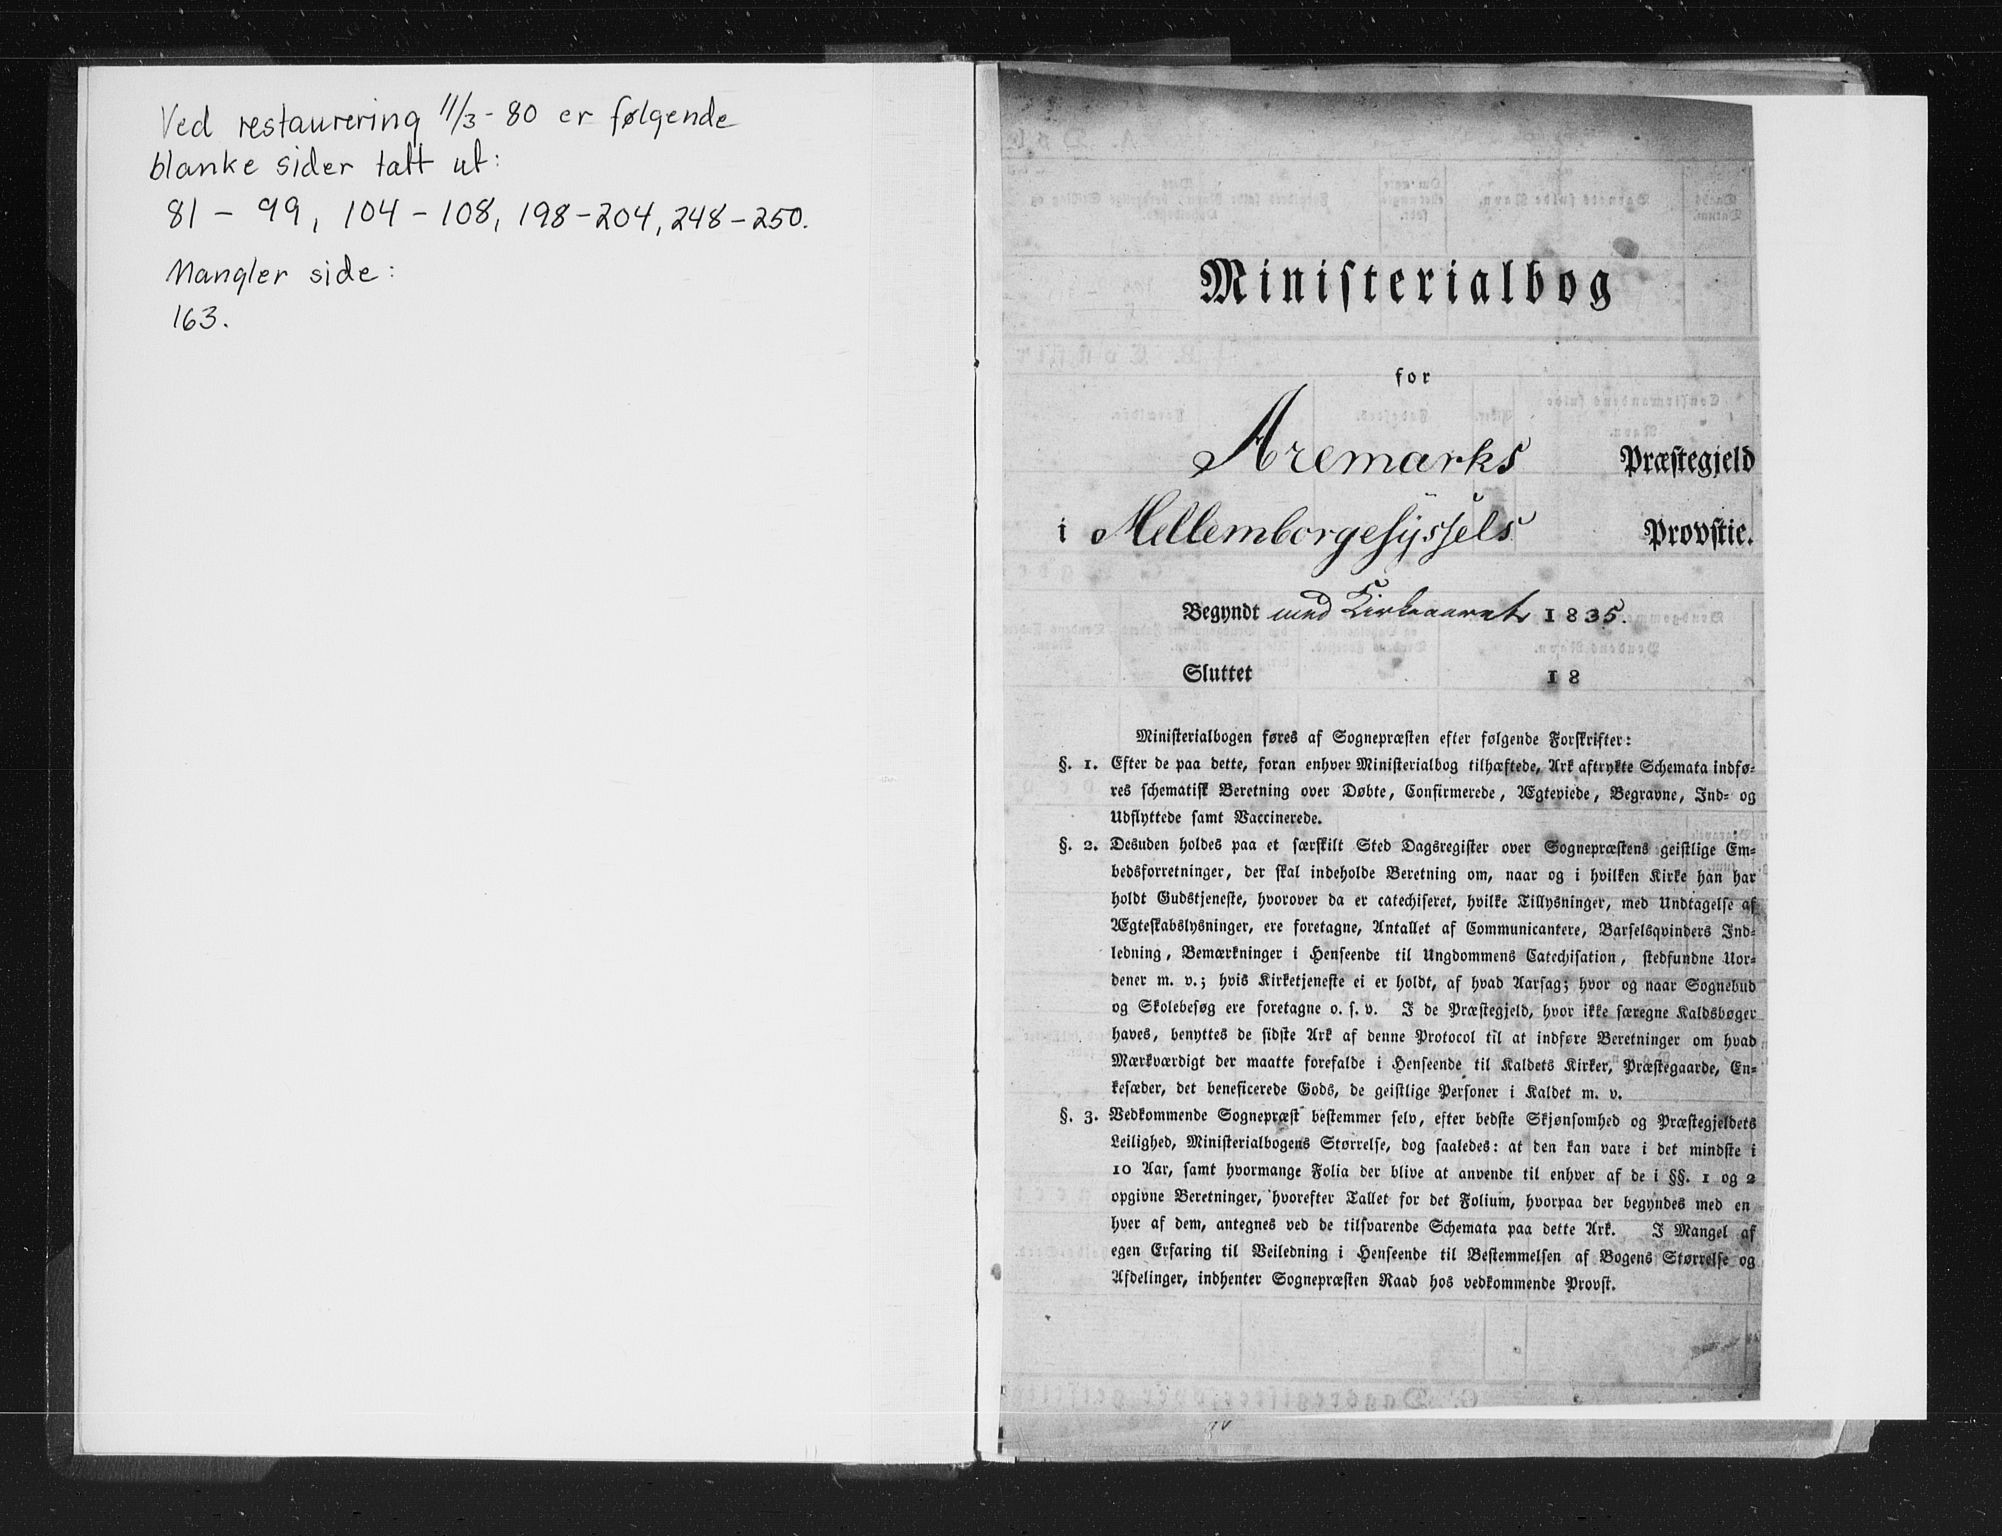 Ved restaurering 11/3-80 er følgende
blanke sider tatt ut:
81 - 99, 104 - 108, 198-204, 248-250.
Mangler side:
163.
Ministerialbog
for
Aremarks Præstegjeld
i Mellemborgesyssels Provstie.
Begyndt med Kirkeaaret 1835.
Sluttet 18
Ministerialbogen føres af Sognepræsten efter følgende Forskrifter:
§. 1. Efter de paa dette, foran enhver Ministerialbog tilhæftede, Ark aftrykte Schemata indfø-
res schematisk Beretning over Døbte, Confirmerede, Ægteviede, Begravne, Ind- og
Udflyttede samt Vaccinerede.
§. 2. Desuden holdes paa et særskilt Sted Dagsregister over Sognepræstens geistlige Em-
bedsforretninger, der skal indeholde Beretning om, naar og i hvilken Kirke han har
holdt Gudstjeneste, hvorover da er catechiseret, hvilke Tillysninger, med Undtagelse af
Ægteskabslysninger, ere foretagne, Antallet af Communicantere, Barselqvinders Ind-
ledning, Bemærkninger i Henseende til Ungdommens Catechisation, stedfundne Uor-
dener m. v.; hvis Kirketjeneste ei er holdt, af hvad Aarsag; hvor og naar Sognebud
og Skolebesøg ere foretagne o. s. v. I de Præstegjeld, hvor ikke særegne Kaldsbøger
haves, benyttes de sidste Ark af denne Protocol til at indføre Beretninger om hvad
Mærkværdigt der maatte forefalde i Henseende til Kaldets Kirker, Præstegaarde, En-
kesæder, det beneficerede Gods, de geistlige Personer i Kaldet m. v.
§. 3. Vedkommende Sognepræst bestemmer selv, efter bedste Skjønsomhed og Præstegjeldets
Leilighed, Ministerialbogens Størrelse, dog saaledes: at den kan vare i det mindste i
10 Aar, samt hvormange Folia der blive at anvende til enhver af de i §§. 1 og 2
opgivne Beretninger, hvorefter Tallet for det Folium, hvorpaa der begyndes med en
hver af dem, antegnes ved de tilsvarende Schemata paa dette Ark. I Mangel af
egen Erfaring til Veiledning i Henseende til Bestemmelsen af Bogens Størrelse og
Afdelinger, indhenter Sognepræsten Raad hos vedkommende Provst.